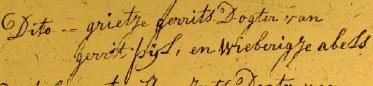 Dito — grietje gerrits Dogter van
gerrit pijl, en wieberigje abels